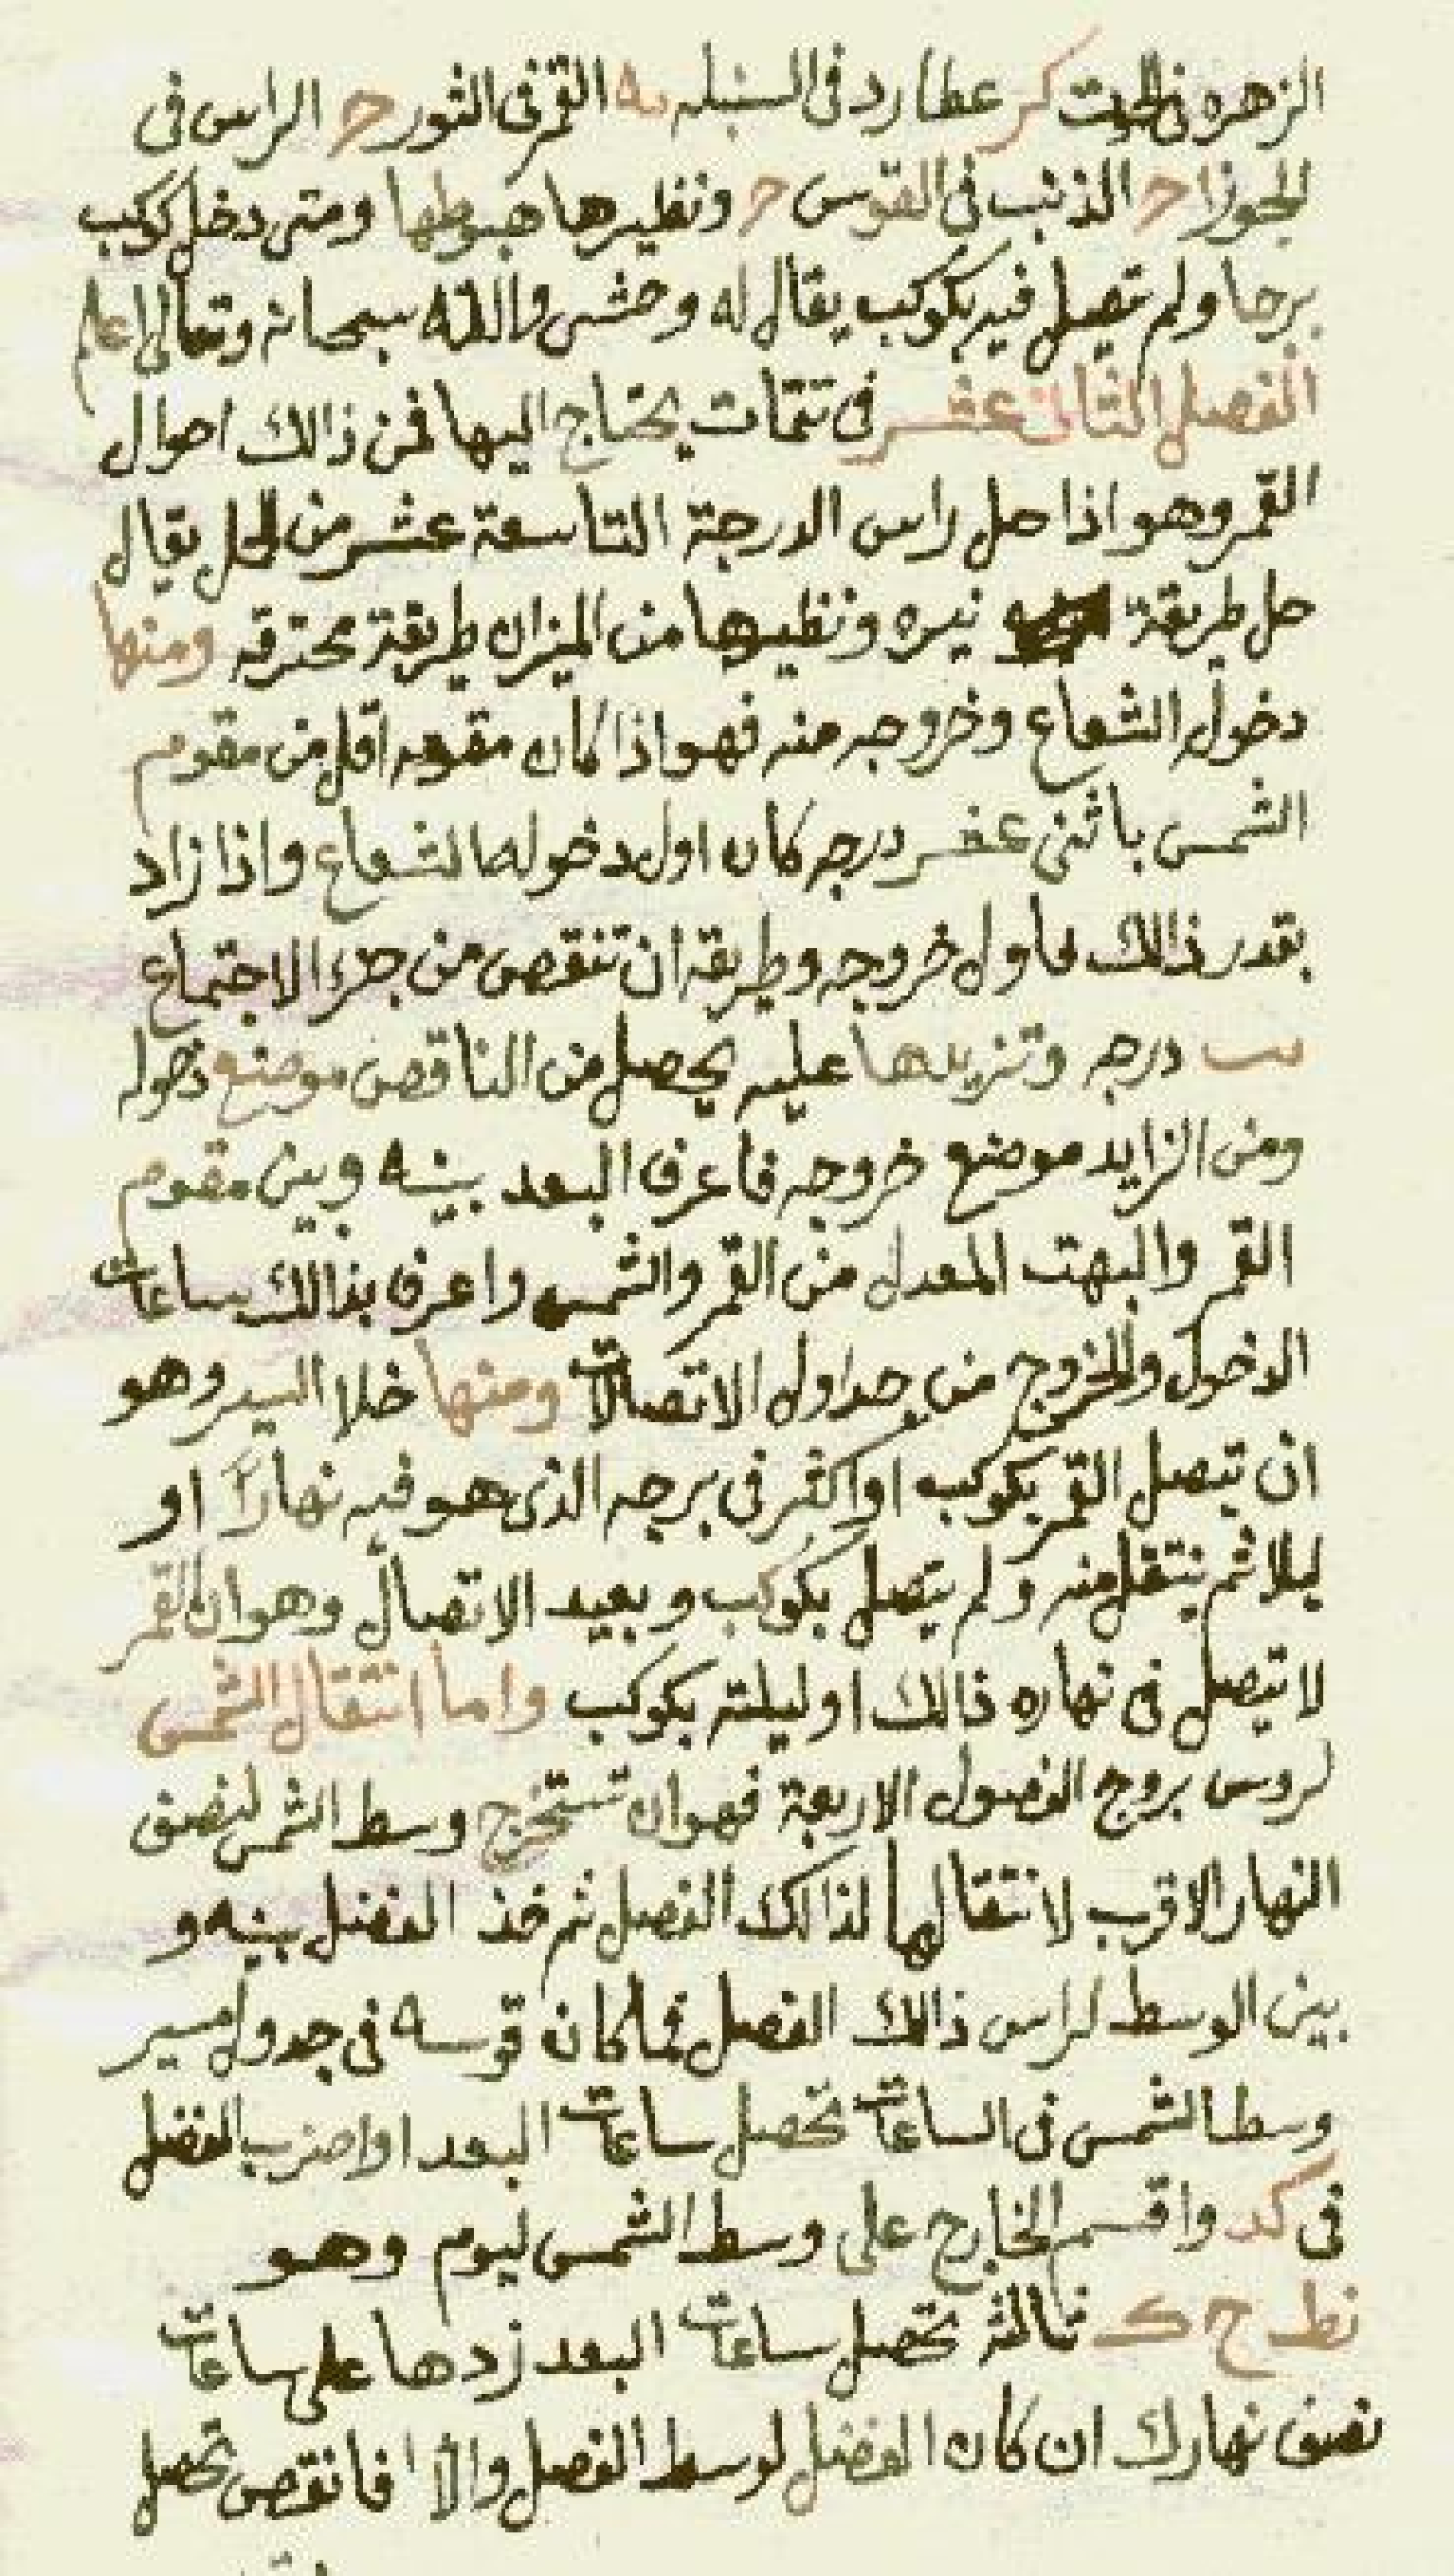 الزهره فى الحوت كز عطارد فى السنبله يه القمر فى الثور ح الراس فى
الجوزا ح الذنب فى القوس ح ونظيرها هبوطها ومتى دخل كوكب
برجا ولم يتصل فيه بكوكب يقال له وحشى والله سبحانه وتعالى اعلم
الفصل الثانى عشر فى تتمات يحتاج اليها فمن ذالك احوال
القمر وهو اذا حل راس الدرجة التاسعة عشر من الحمل يقال
حل طريقة نيره ونظيرها من الميزان طريقة محترقه ومنها
دخوله الشعاع وخروجه منه فهو اذا كان مقومه اقل من مقوم
الشمس باثنى عشر درجه كان اول دخوله الشعاع واذا زاد
بقدر ذالك فاول خروجه وطريقه ان تنقص من جزء الاجتماع
يب درجه وتزيدها عليه يحصل من الناقص موضع دخوله
ومن الزايد موضع خروجه فاعرف البعد بينه وبين مقوم
القمر والبهت المعدل من القمر والشمس واعرف بذالك ساعات
الدخول والخروج من جداول الاتصالات ومنها خلا السير وهو
ان يتصل القمر بكوكب او اكثر فى برجه الذى هو فيه نهارًا او
ليلا ثم ينتقل منه ولم يتصل بكوكب وبعيد الاتصال وهو ان القمر
لا يتصل فى نهاره ذالك او ليلته بكوكب واما انتقال الشمس
لروس بروج الفصول الاربعة فهو ان تستخرج وسط الشمس لنصف
النهار الاقرب لانتقالها لذالك الفصل ثم خذ الفضل بينه و
بين الوسط لراس ذالك الفصل فما كان قوسه فى جدول مسير
وسط الشمس فى الساعات تحصل ساعات البعد او اضرب الفضل
فى كد واقسم الخارج على وسط الشمس ليوم وهو
نط ح ك ثالثه تحصل ساعات البعد زدها على ساعات
نصف نهارك ان كان الفضل لوسط الفصل والا فانقص تحصل